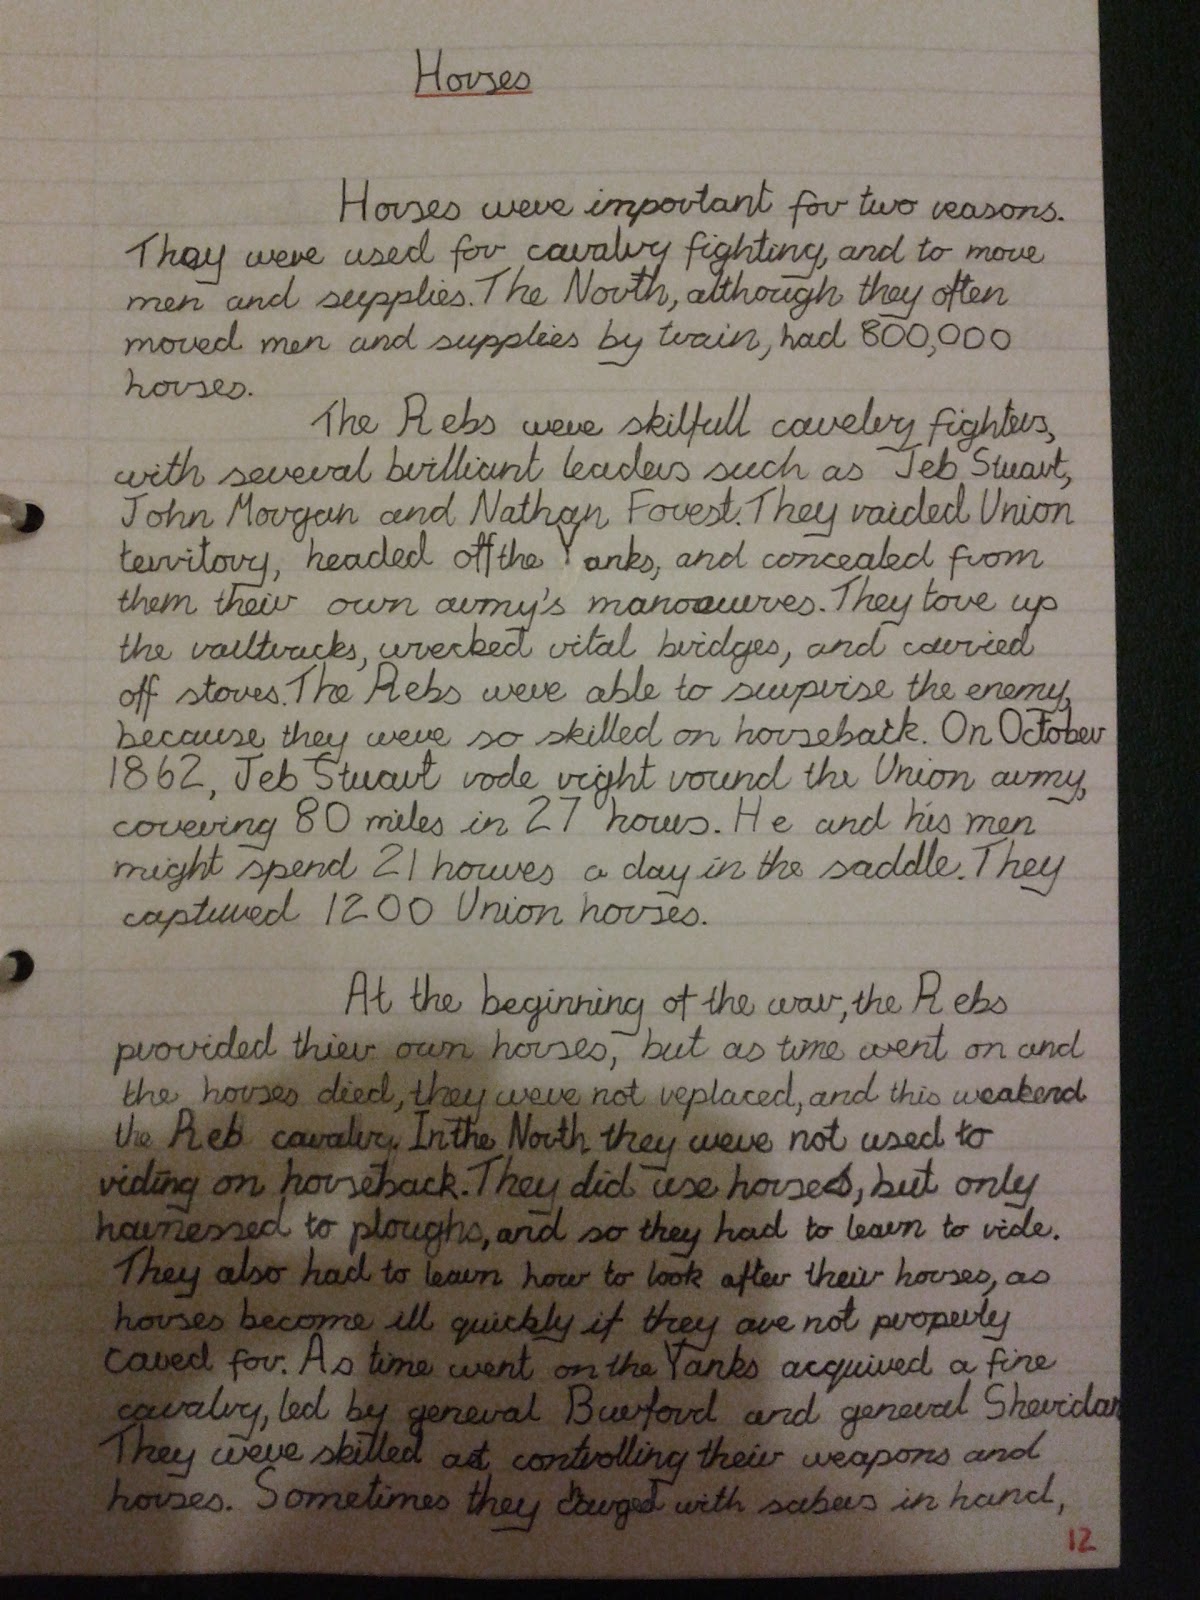 Horses
Horses were important for two reasons.
They were used for cavalry fighting, and to move
men and supplies. The North, although they often
moved men and supplies by train, had 800,000
horses.
The Rebs were skilfull cavelry fighters,
with several brilliant leaders such as Jeb Stuart,
John Morgan and Nathan Forest. They raided Union
territory, headed off the Yanks, and concealed from
them their own army's manoeurves. They tore up
the railtracks, wrecked vital bridges, and carried
off stores. The Rebs were able to surprise the enemy,
because they were so skilled on horseback. On October
1862, Jeb Stuart rode right round the Union army,
covering 80 miles in 27 hours. He and his men
might spend 21 houres a day in the saddle. They
captured 1200 Union horses.
At the beginning of the war, the Rebs
provided thier own horses, but as time went on and
the horses died, they were not replaced, and this weakend
the Reb cavalry. In the North they were not used to
riding on horseback. They did use horses, but only
harnessed to ploughs, and so they had to learn to ride.
They also had to learn how to look after their horses, as
horses become ill quickly if they are not properly
cared for. As time went on the Yanks acquired a fine
cavalry, led by general Bueford and general Sheridan
They were skilled at controlling their weapons and
horses. Sometimes they charged with sabers in hand,
12